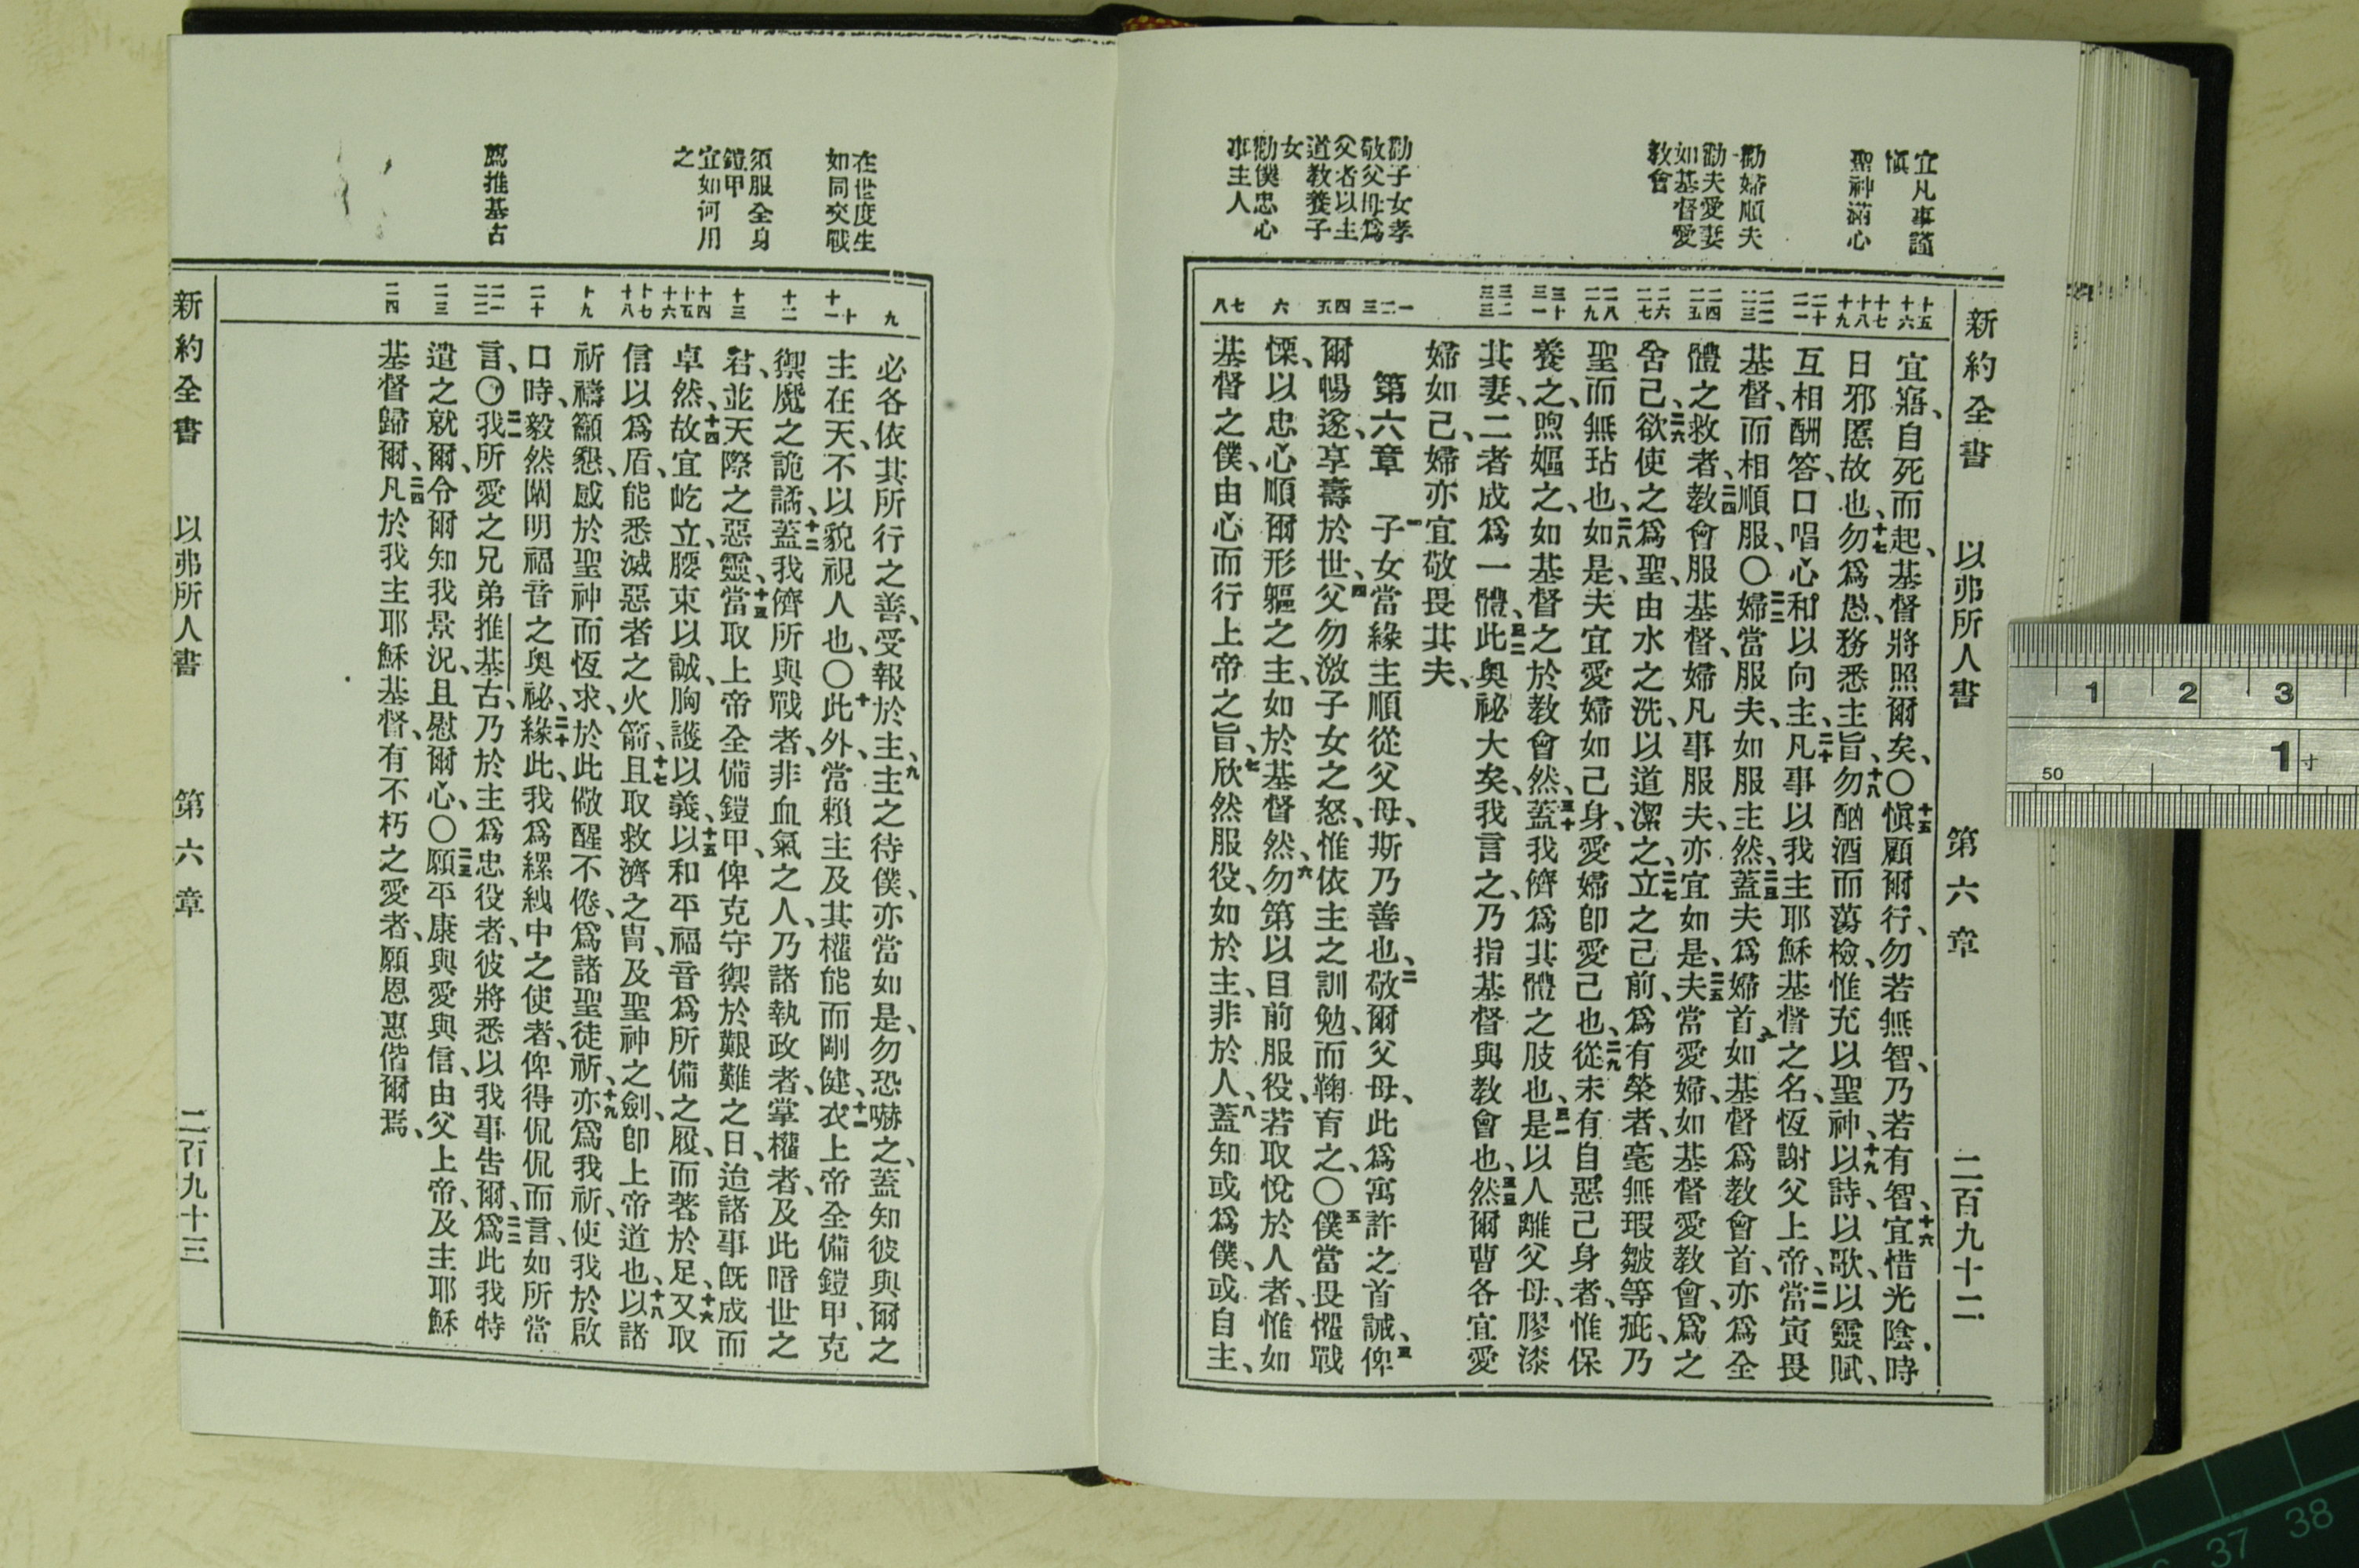 新約全書 以弗所人書 第六章 二百九十二
宜凡事謹
愼
聖神滿心
勸婦順夫
勸夫愛妻
如基督愛
教會
勸子女孝
敬父母爲
父者以主
道教養子
女
勸僕忠心
事主人
十五
十六
十七
十八
十九
二十
二一
二二
二三
二四
二五
二六
二七
二八
二九
三十
三一
三二
三三
一
二
三
四
五
六
七
八
宜寤、自死而起、基督將照爾矣、〇十五愼顧爾行、勿若無智、乃若有智、十六宜惜光陰、時
日邪慝故也、十七勿爲愚、務悉主旨、十八勿酗酒而蕩檢、惟充以聖神、十九以詩、以歌、以靈賦、
互相酬答、口唱心和以向主、二十凡事以我主耶穌基督之名、恆謝父上帝、二一當寅畏
基督、而相順服、〇二二婦當服夫、如服主然、二三蓋夫爲婦首、如基督爲教會首、亦爲全
體之救者、二四教會服基督、婦凡事服夫、亦宜如是、二五夫當愛婦、如基督愛教會、爲之
舍己、二六欲使之爲聖、由水之洗、以道潔之、二七立之己前、爲有榮者、毫無瑕皺等疵、乃
聖而無玷也、二八如是、夫宜愛婦如己身、愛婦卽愛己也、二九從未有自惡己身者、惟保
養之、煦嫗之、如基督之於教會然、三十蓋我儕爲其體之肢也、三一是以人離父母、膠漆
其妻、二者成爲一體、三二此奧祕大矣、我言之、乃指基督與教會也、三三然爾曹各宜愛
婦如己、婦亦宜敬畏其夫、
第六章 一子女當緣主順從父母、斯乃善也、二敬爾父母、此爲寓許之首誡、三俾
爾暢遂、享壽於世、四父勿激子女之怒、惟依主之訓勉、而鞠育之、〇五僕當畏懼戰
慄、以忠心順爾形軀之主、如於基督然、六勿第以目前服役、若取悅於人者、惟如
基督之僕、由心而行上帝之旨、七欣然服役、如於主、非於人、八蓋知或爲僕、或自主、
在世度生
如同交戰
須服全身
鎧甲
宜如何用
之
薦推基古
九
十
十一
十二
十三
十四
十五
十六
十七
十八
十九
二十
二一
二二
二三
二四
必各依其所行之善、受報於主、九主之待僕、亦當如是、勿恐嚇之、蓋知彼與爾之
主在天、不以貌視人也、〇十此外、當賴主及其權能而剛健、十一衣上帝全備鎧甲、克
禦魔之詭譎、十二蓋我儕所與戰者、非血氣之人、乃諸執政者、掌權者、及此暗世之
君、並天際之惡靈、十三當取上帝全備鎧甲、俾克守禦於艱難之日、迨諸事旣成而
卓然、十四故宜屹立、腰束以誠、胸護以義、十五以和平福音爲所備之履、而著於足、十六又取
信以爲盾、能悉滅惡者之火箭、十七且取救濟之冑、及聖神之劍、卽上帝道也、十八以諸
祈禱籲懇、感於聖神而恆求、於此儆醒不倦、爲諸聖徒祈、十九亦爲我祈、使我於啟
口時、毅然闡明福音之奧祕、二十緣此、我爲縲絏中之使者、俾得侃侃而言、如所當
言、〇二一我所愛之兄弟推基古、乃於主爲忠役者、彼將悉以我事告爾、二二爲此我特
遣之就爾、令爾知我景況、且慰爾心、〇二三願平康與愛與信、由父上帝、及主耶穌
基督歸爾、二四凡於我主耶穌基督、有不朽之愛者、願恩惠偕爾焉、
新約全書 以弗所人書 第六章 二百九十三
1 2 3
50 1寸
37 38